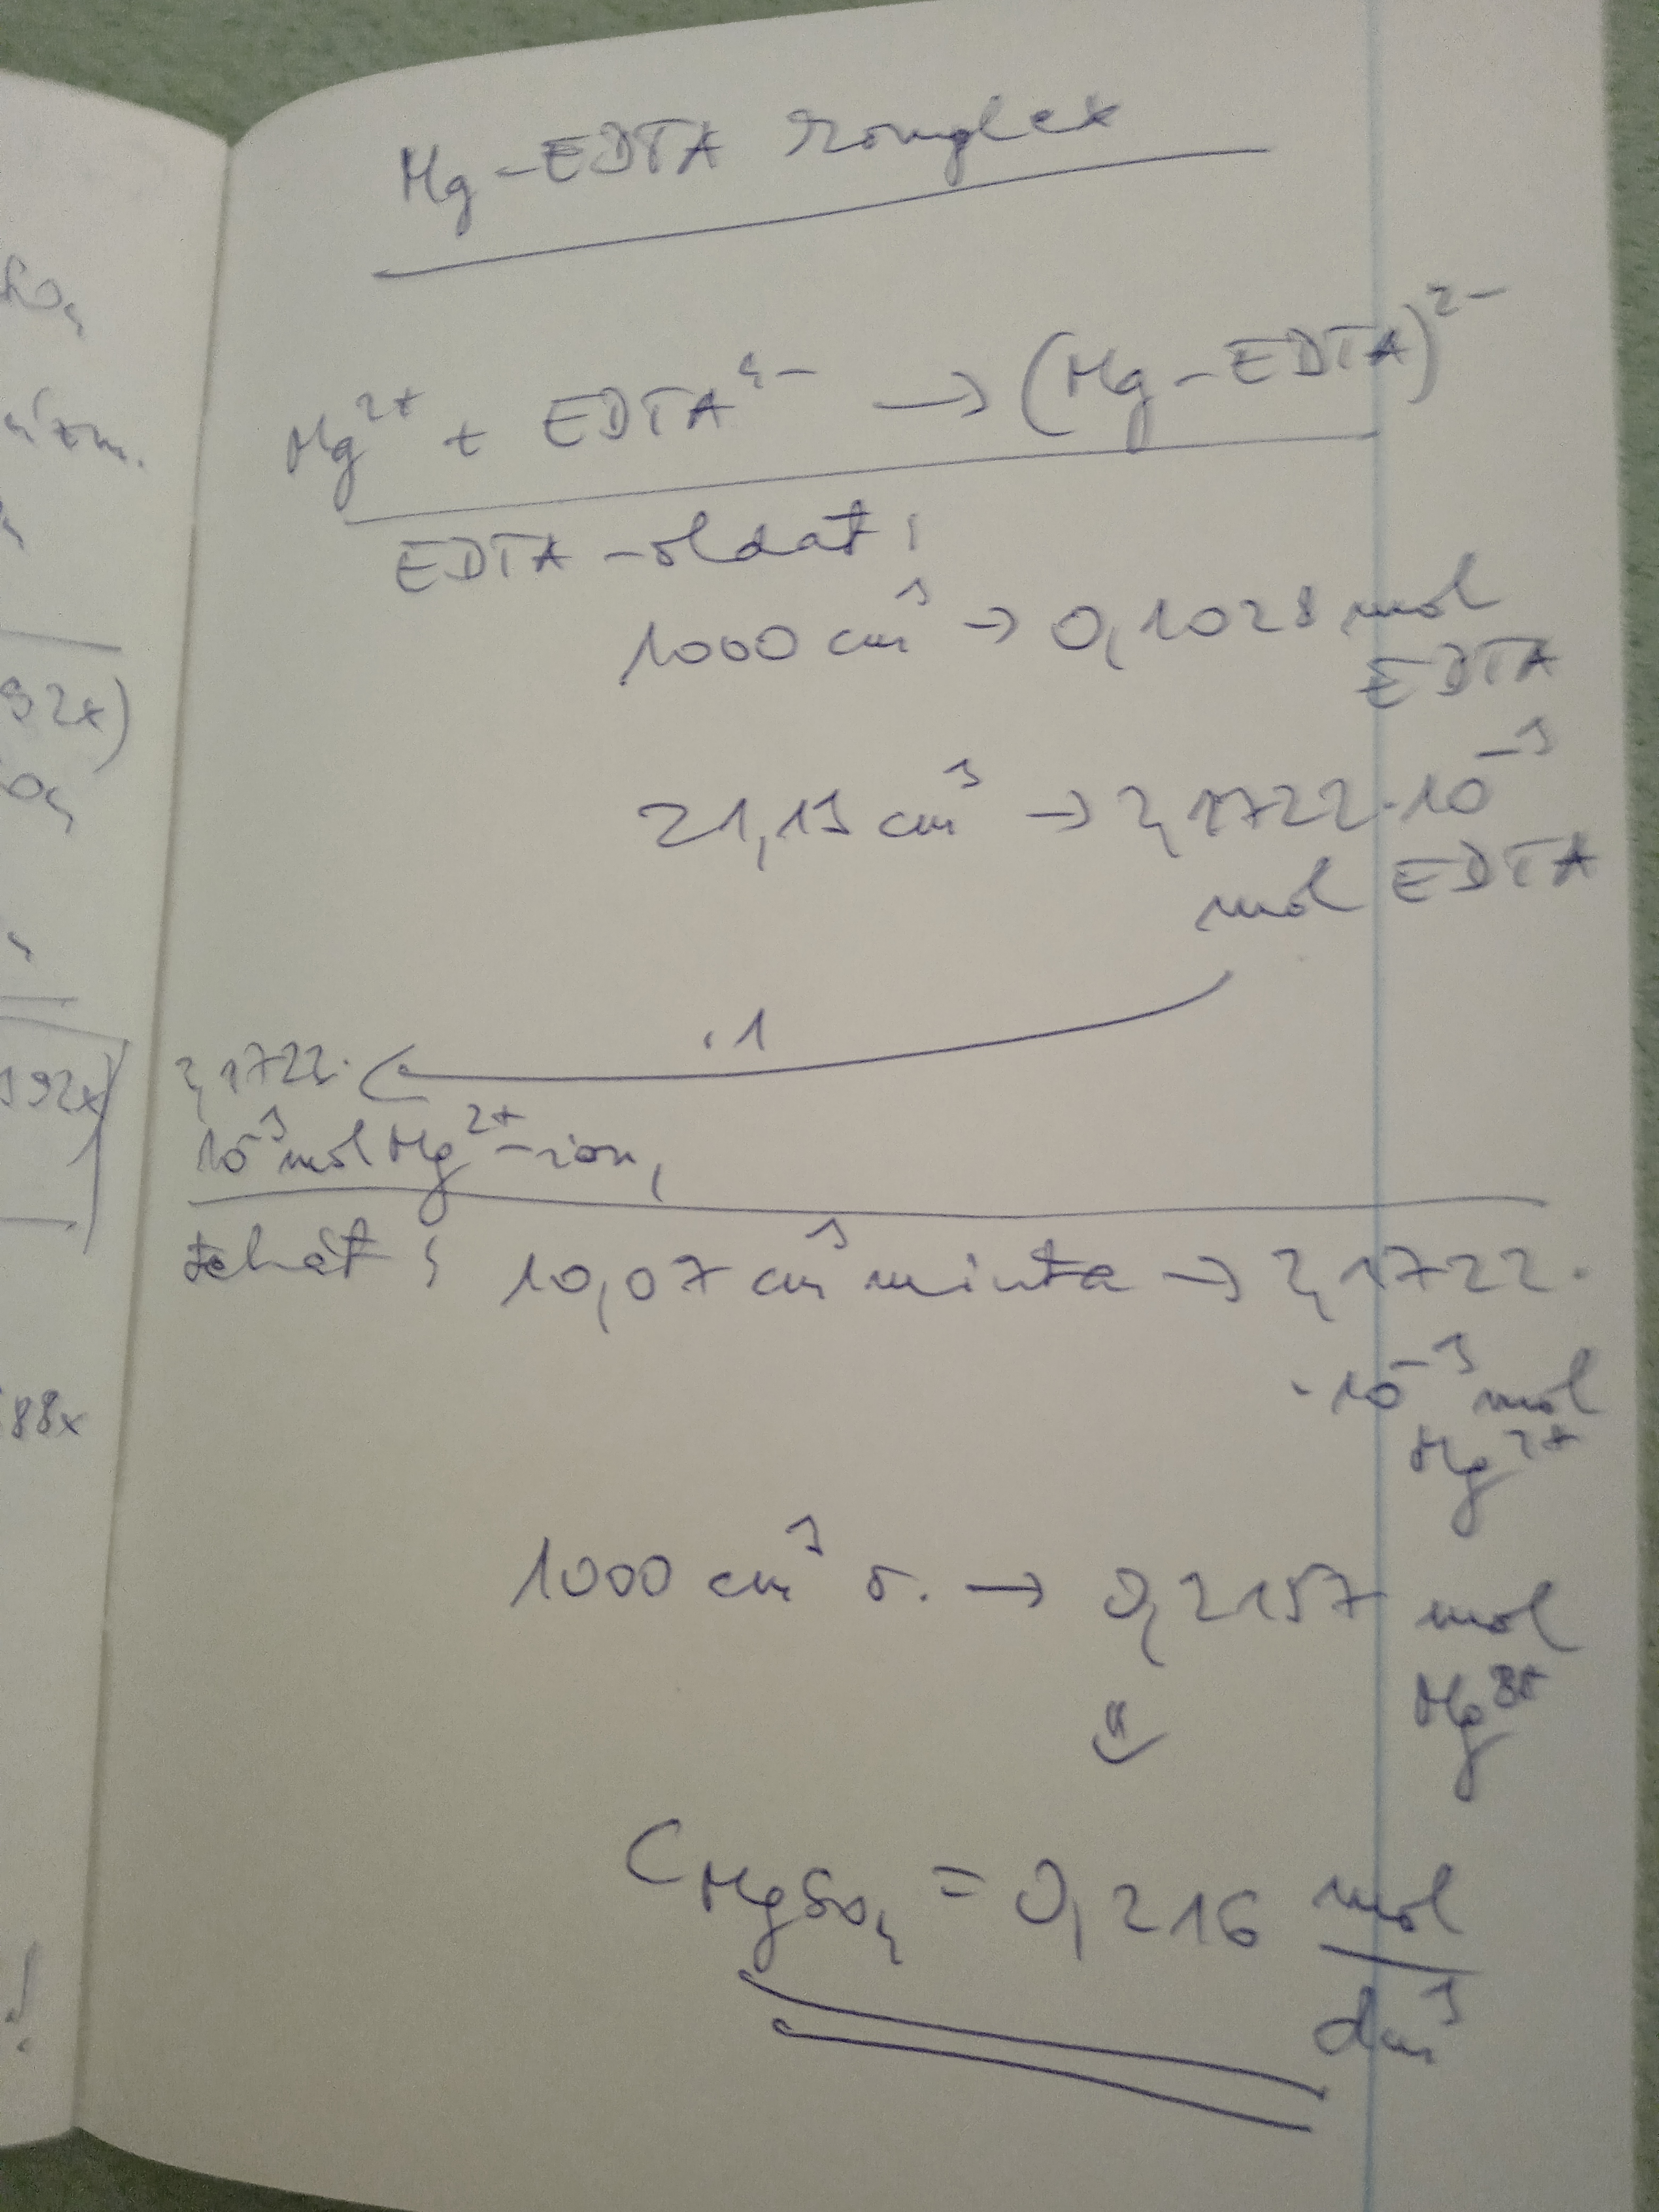 SO₄
92x)
O₄
192x)
:88x
!
Mg-EDTA komplex
Mg²⁺ + EDTA⁴⁻ → (Mg-EDTA)²⁻
EDTA-oldat:
1000 cm³ → 0,1028 mol
EDTA
21,13 cm³ → 2,1722·10⁻³
mol EDTA
·1
2,1722·
10⁻³ mol Mg²⁺-ion,
tehát: 10,07 cm³ minta → 2,1722·
·10⁻³ mol
Mg²⁺
1000 cm³ o. → 0,2157 mol
Mg²⁺
⇓
C MgSO₄ = 0,216 mol
dm³